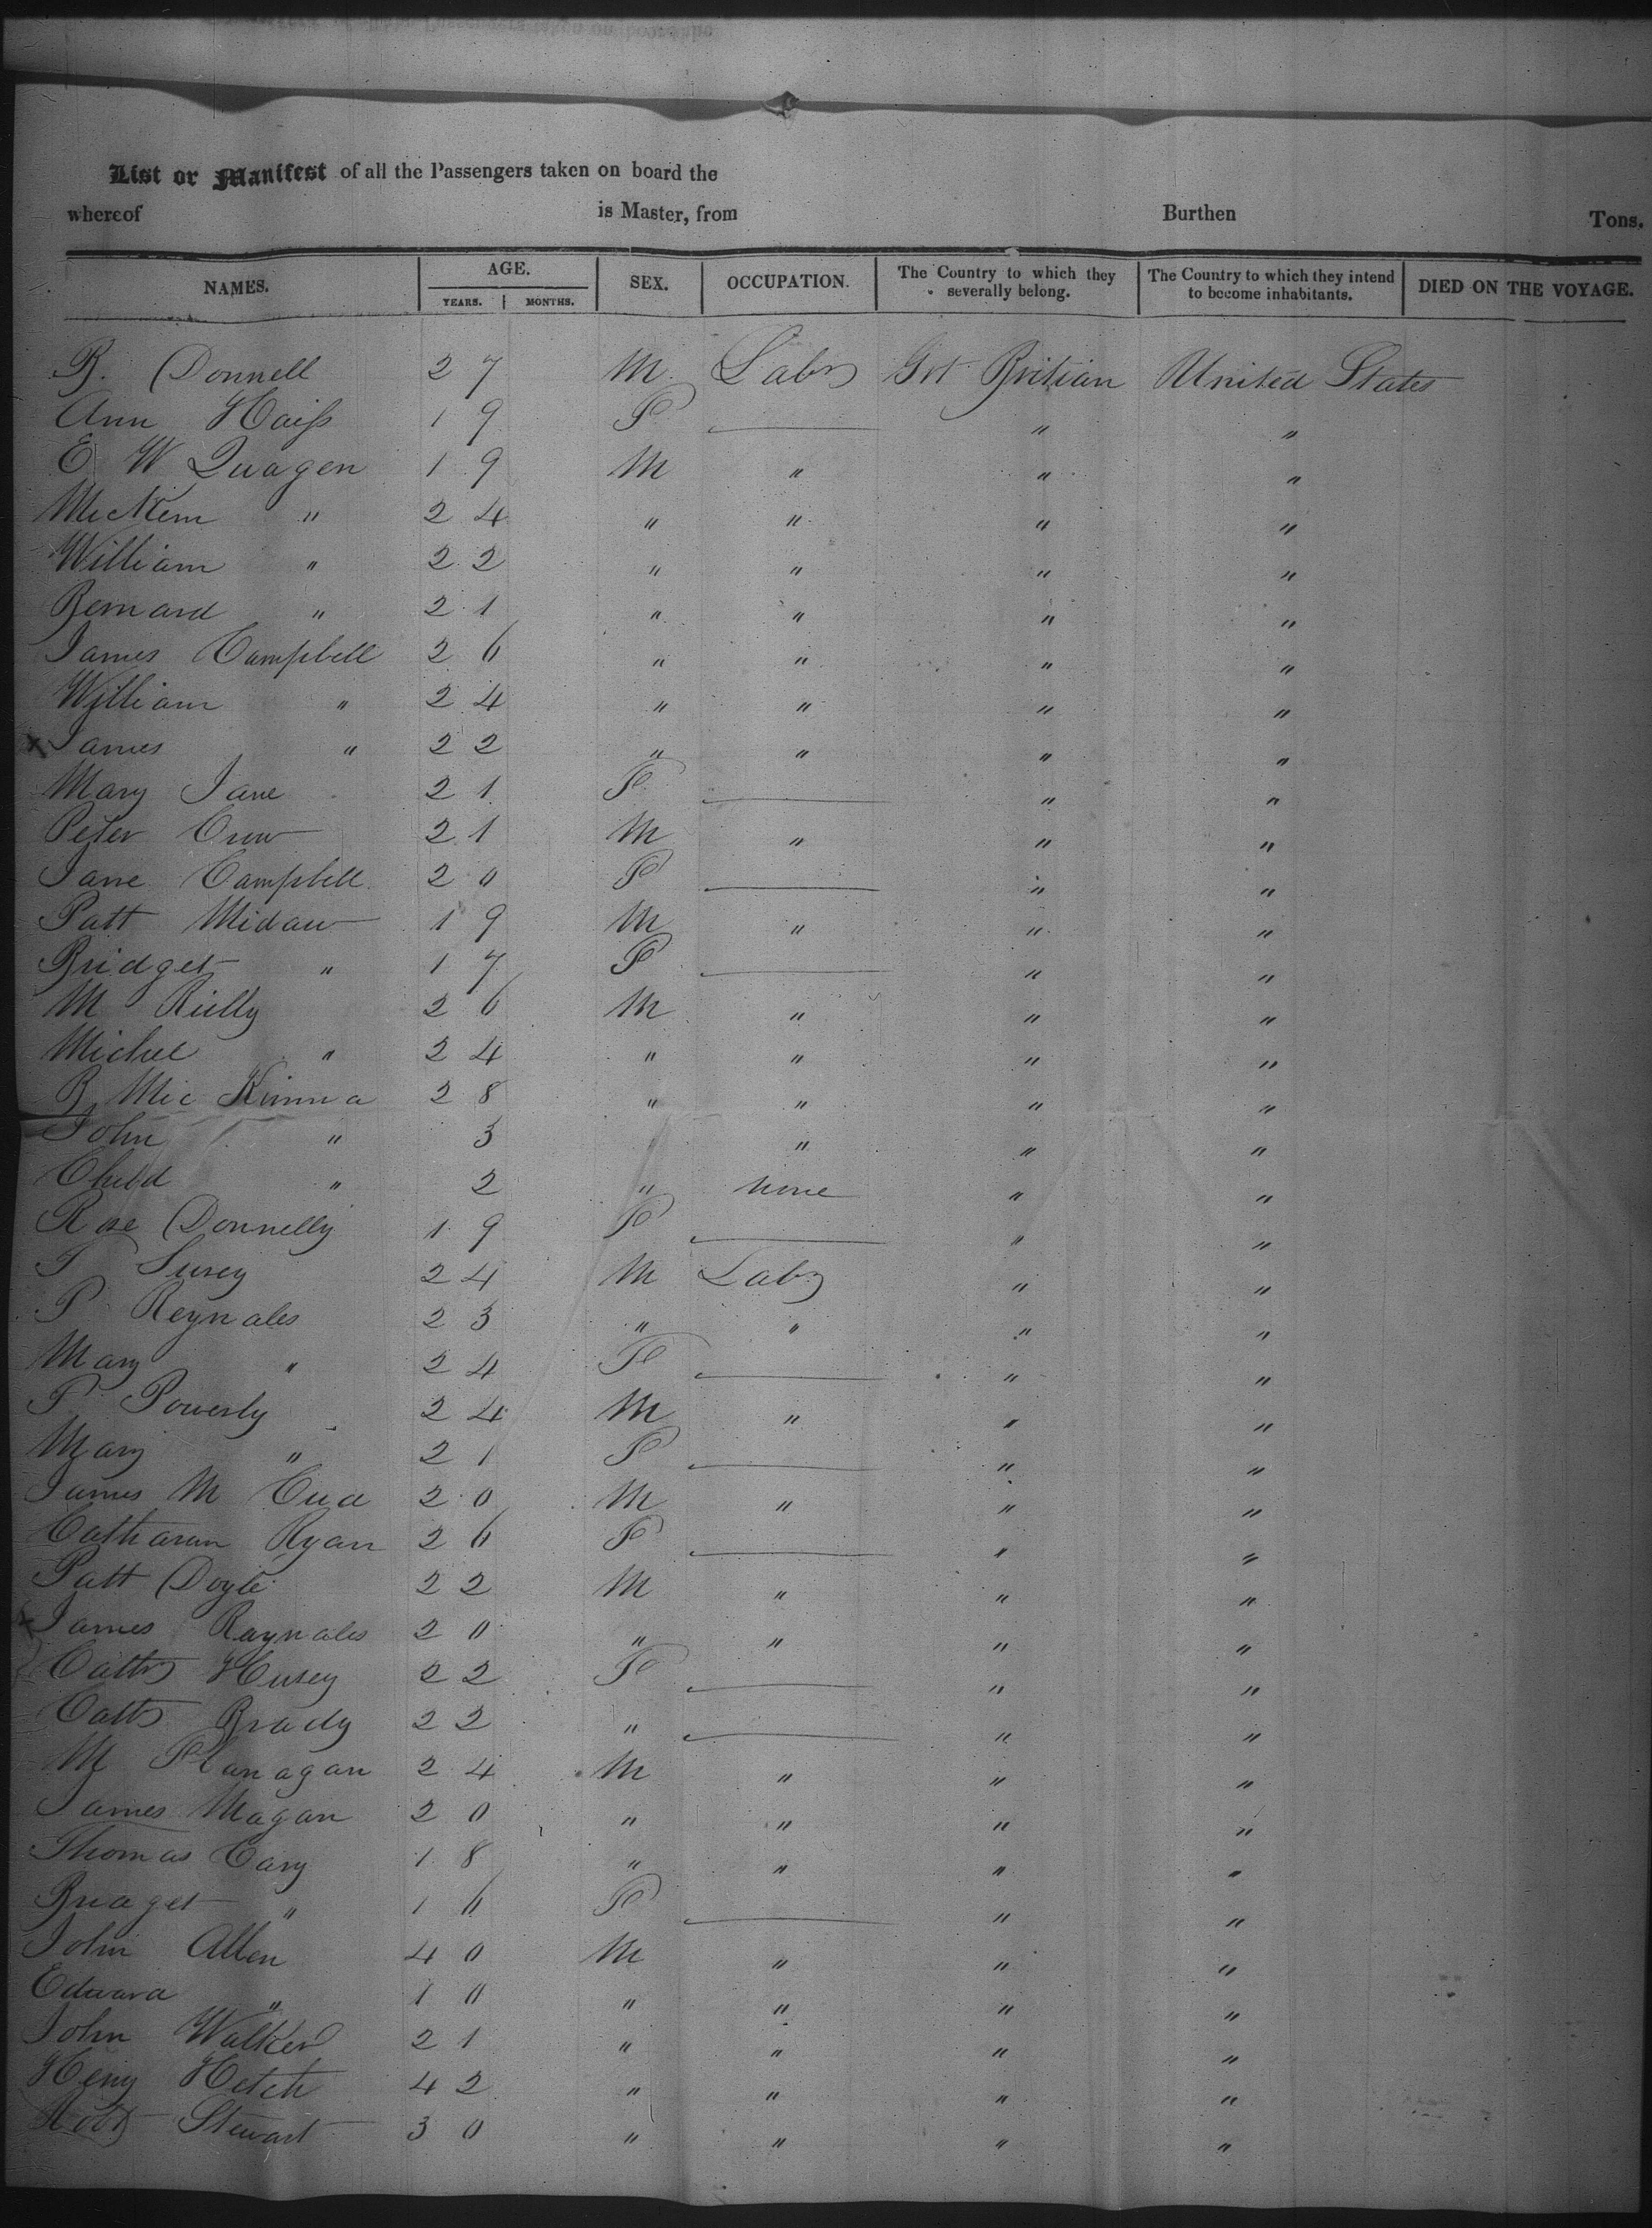 List or Manifest of all the Passengers taken on board the
whereof is Master, from Burthen Tons.
NAMES. AGE. SEX. OCCUPATION. The Country to which they severally belong. The Country to which they intend to become inhabitants. DIED ON THE VOYAGE.
YEARS. MONTHS.
B. Donnell 27 M Labr Grt Britian United States
Ann 19 F " "
E W Quagen 19 M " " "
" 24 " " " "
William " 22 " " " "
Bernard " 21 " " " "
James Campbell 26 " " " "
William " 24 " " " "
x James " 22 " " " "
Mary Jane 21 F " "
Peter Crow 21 M " " "
Jane Campbell 20 F " "
Patt Midaw 19 M " " "
Bridget " 17 F " "
M Rielly 26 M " " "
Michel " 24 " " " "
B Mic Kinna 28 " " " "
John " 3 " " "
Child " 2 " none " "
Rose Donnelly 19 F " "
24 M Labr " "
P Reynales 23 " " " "
Mary " 24 F " "
P Powerly 24 M " " "
Mary " 21 F " "
James M 20 M " " "
Catharan Ryan 26 F " "
Patt Doyle 22 M " " "
x James Raynales 20 " " " "
Cath Husey 22 F " "
Cath Brady 22 " " "
M Flanagan 24 M " " "
James Magan 20 " " " "
Thomas Cary 18 " " " "
Bridget " 16 F " "
John Allen 40 M " " "
Edward " 10 " " " "
John Walker 21 " " " "
Heny Hetch 42 " " " "
Robt Stewart 30 " " " "